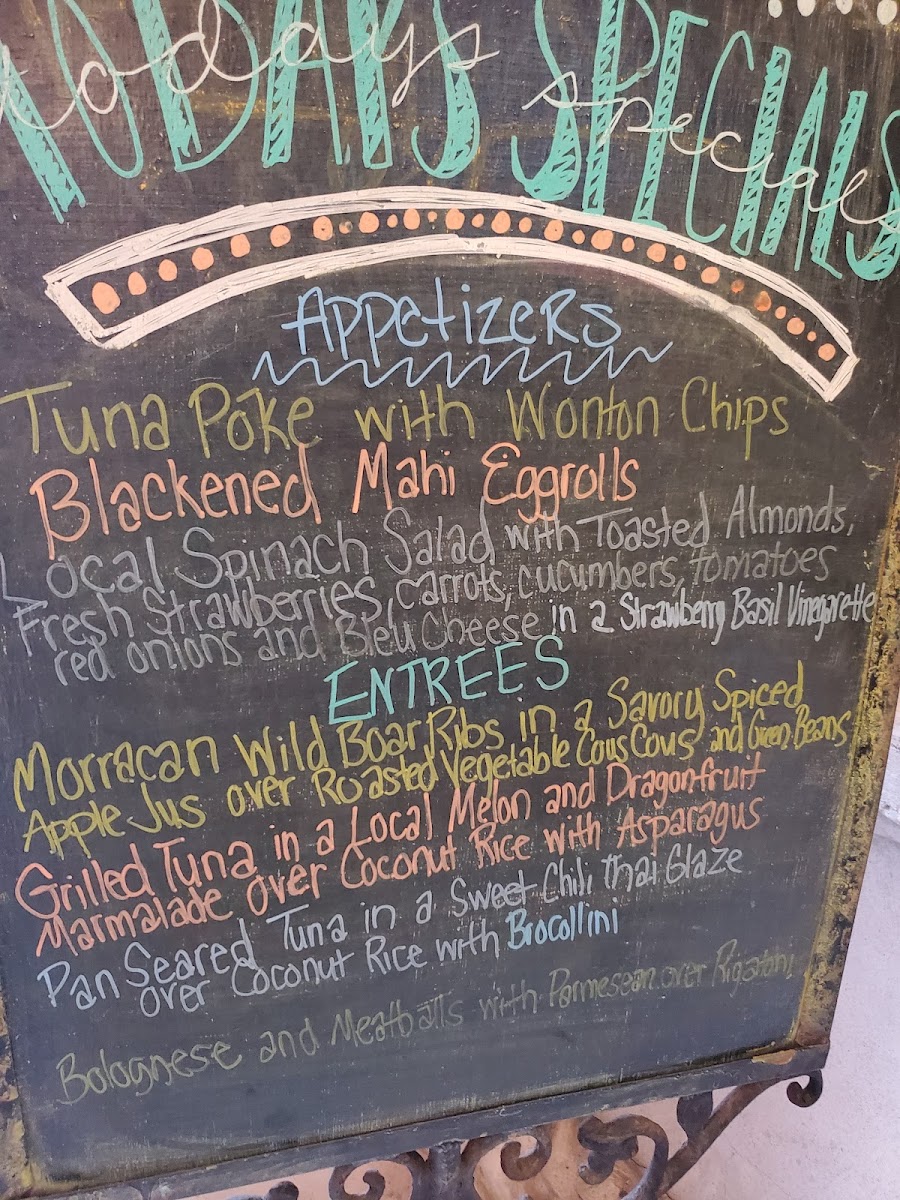 TODAYS SPECIALS
todays specials
Appetizers
Tuna Poke with Wonton Chips
Blackened Mahi Eggrolls
Local Spinach Salad with Toasted Almonds,
Fresh Strawberries, carrots, cucumbers, tomatoes
red onions and Bleu Cheese in a Strawberry Basil Vinegarette
ENTREES
Morracan Wild Boar Ribs in a Savory Spiced
Apple Jus over Roasted Vegetable Cous Cous and Green Beans
Grilled Tuna in a Local Melon and Dragonfruit
Marmalade over Coconut Rice with Asparagus
Pan Seared Tuna in a Sweet Chili Thai Glaze
over Coconut Rice with Brocollini
Bolognese and Meatballs with Parmesean over Rigatoni